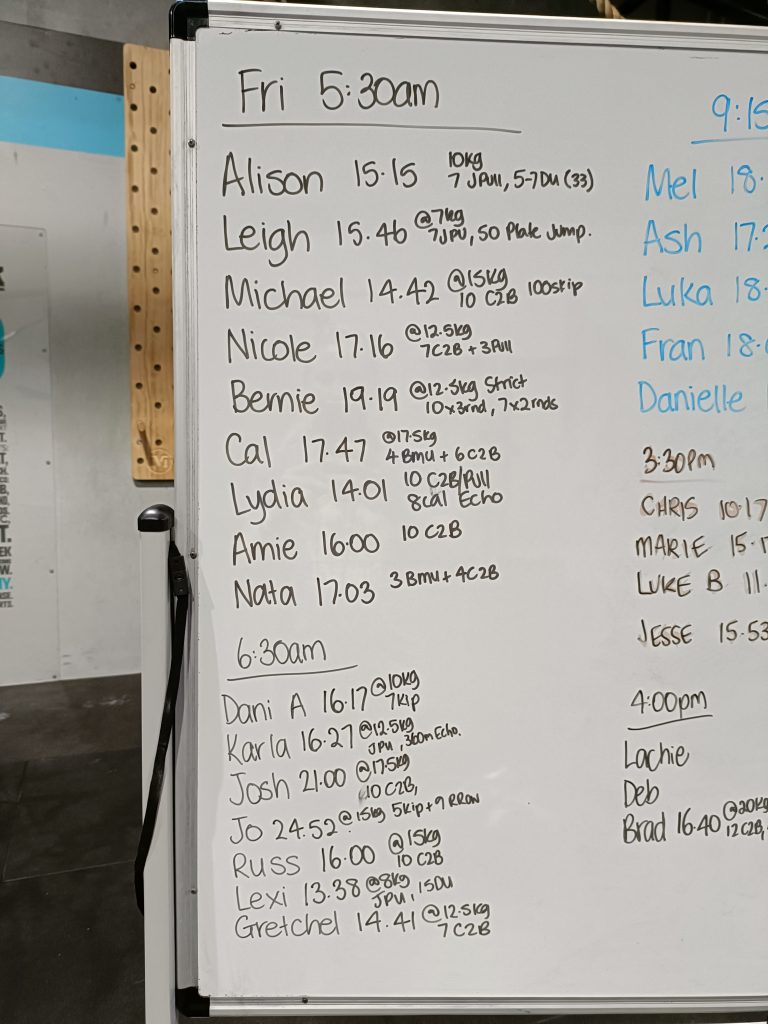 Fri 5:30am
Alison 15.15 10kg
7 JPull, 5-7DU (33)
Leigh 15.46 @7kg
7JPU, 50 Plate Jump.
Michael 14.42 @15kg
10 C2B 100skip
Nicole 17.16 @12.5kg
7C2B + 3Pull
Bernie 19.19 @12.5kg Strict
10x3rnd, 7x2rnds
Cal 17.47 @17.5kg
4 Bmu + 6 C2B
Lydia 14.01 10 C2B/Pull
8cal Echo
Amie 16.00 10 C2B
Nata 17.03 3 Bmu + 4C2B
6:30am
Dani A 16.17 @10kg
7Kip
Karla 16.27 @12.5kg
JPU, 360m Echo.
Josh 21.00 @17.5kg
10 C2B,
Jo 24.52 @15kg 5kip + 9 RROW
Russ 16.00 @15kg
10 C2B
Lexi 13.38 @8kg
JPU, 15DU
Gretchel 14.41 @12.5kg
7 C2B
9:15
Mel 18.
Ash 17.
Luka 18.
Fran 18.
Danielle
3:30pm
CHRIS 10.17
MARIE 15.1
LUKE B 11.
JESSE 15.53
4:00pm
Lachie
Deb
Brad 16.40 @20kg
12 C2B,